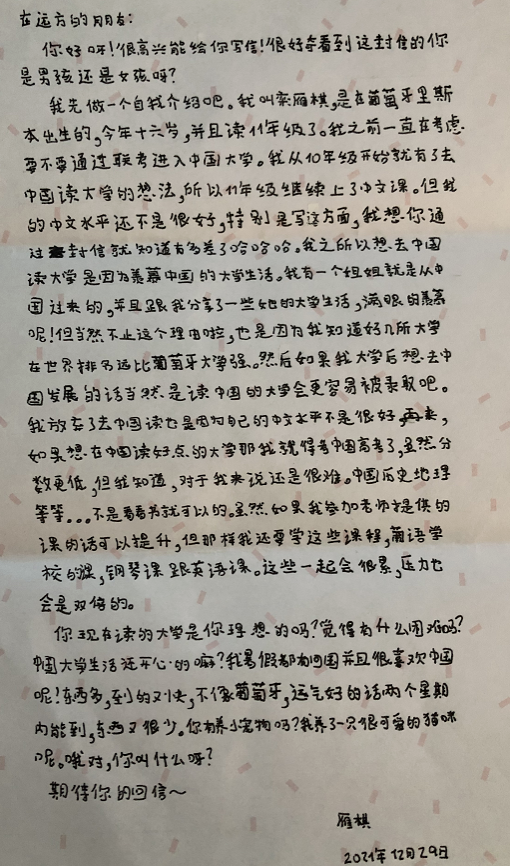 在远方的朋友:
你好呀!很高兴能给你写信!很好奇看到这封信的你
是男孩还是女孩呀?
我先做一个自我介绍吧。我叫栾雁棋,是在葡萄牙里斯
本出生的,今年十六岁,并且读11年级了。我之前一直在考虑
要不要通过联考进入中国大学。我从10年级开始就有了去
中国读大学的想法,所以11年级继续上了中文课。但我
的中文水平还不是很好,特别是写这方面,我想你通
过封信就知道有多差了哈哈哈。我之所以想去中国
读大学是因为羡慕中国的大学生活。我有一个姐姐就是从中
国过来的,并且跟我分享了一些她的大学生活,满眼的羡慕
呢!但当然不止这个理由啦,也是因为我知道好几所大学
在世界排名远比葡萄牙大学强。然后如果我大学后想去中
国发展的话当然是读中国的大学会更容易被录取吧。
我放弃了去中国读也是因为自己的中文水平不是很好,
如果想在中国读好点的大学那我就得考中国高考了,虽然分
数更低,但我知道,对于我来说还是很难。中国历史地理
等等...不是看看书就可以的。虽然如果我参加老师提供的
课的话可以提升,但那样我还要学这些课程,葡语学
校的课,钢琴课跟英语课。这些一起会很累,压力也
会是双倍的。
你现在读的大学是你理想的吗?觉得有什么困难吗?
中国大学生活还开心的嘛?我暑假都有回国并且很喜欢中国
呢!东西多,到的又快,不像葡萄牙,运气好的话两个星期
内能到,东西又很少。你有养小宠物吗?我养了一只很可爱的猫咪
呢。哦对,你叫什么呀?
期待你的回信~
雁棋
2021年12月29日